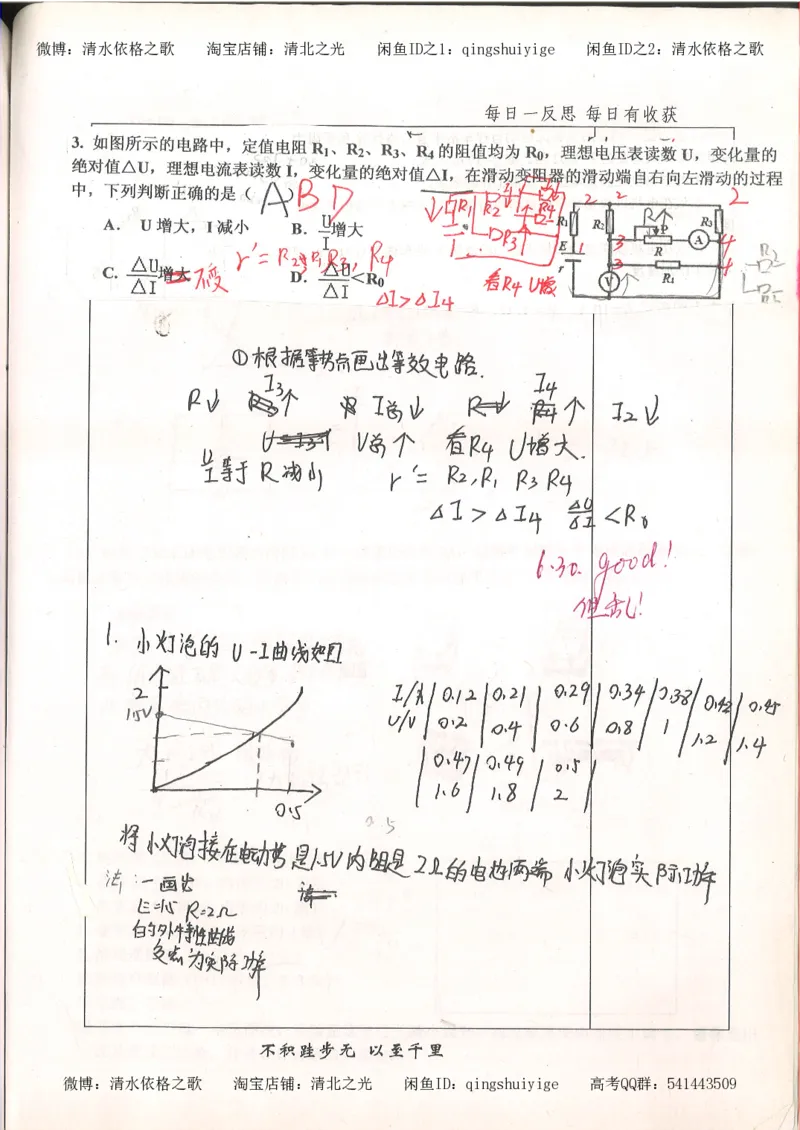 微博：清水依格之歌 淘宝店铺：清北之光 闲鱼ID之1：qingshuiyige 闲鱼ID之2：清水依格之歌
每日一反思 每日有收获
3. 如图所示的电路中，定值电阻 R₁、R₂、R₃、R₄ 的阻值均为 R₀，理想电压表读数 U，变化量的
绝对值△U，理想电流表读数 I，变化量的绝对值△I，在滑动变阻器的滑动端自右向左滑动的过程
中，下列判断正确的是（ ABD ）
A. U 增大，I 减小 B. U/I 增大
C. △U/△I 增大 不变 D. △U/△I＜R₀
r′= R₂, R₁, R₃, R₄
△I>△I₄
看R₄ U增
R₁ R₂ R₄ R₃
R₁ R₂ P R R₃ A E r V R₁
2 2 2 3 3 4 4 1
①根据等势点画出等效电路.
R↓ I₃↑ I总↓ I₄↑ I₂↓
U总↑ 看R₄ U增大.
U/I 等于 R 减小 r′= R₂, R₁ R₃ R₄
△I>△I₄ △U/△I <R₀
6.30. good!
但乱!
1. 小灯泡的 U-I曲线如图
2
1.5V
0.5
I/A 0.12 0.21 0.29 0.34 0.38 0.42 0.45
U/V 0.2 0.4 0.6 0.8 1 1.2 1.4
0.47 0.49 0.5
1.6 1.8 2
0.5
将小灯泡接在电动势是1.5V内阻是2Ω的电池两端 小灯泡实际功率
法：一画出
E=1.5 R=2Ω
的外特性曲线
交点为实际功率
不积跬步无 以至千里
微博：清水依格之歌 淘宝店铺：清北之光 闲鱼ID：qingshuiyige 高考QQ群：541443509